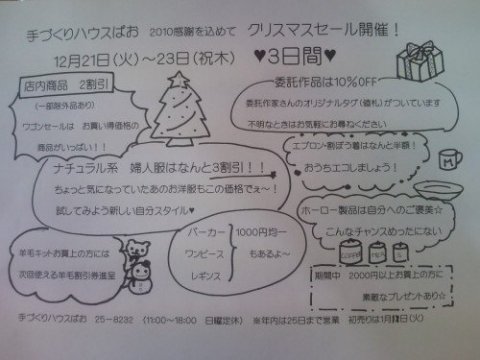 手づくりハウスぱお 2010感謝を込めて クリスマスセール開催！
12月21日(火)～23日(祝木) ♥3日間♥
店内商品 2割引
(一部除外品あり)
ワゴンセールは お買い得価格の
商品がいっぱい！！
委託作品は10％OFF
委託作家さんのオリジナルタグ(値札)がついています
不明なときはお気軽にお尋ねください
ナチュラル系 婦人服はなんと3割引！！
ちょっと気になっていたあのお洋服もこの価格でぇ～！
試してみよう新しい自分スタイル♥
エプロン・割ぽう着はなんと半額！
おうちエコしましょう！
M
ホーロー製品は自分へのご褒美☆
こんなチャンスめったにない
COFFEE
TEA
S
パーカー
ワンピース
レギンス
1000円均一
もあるよ～
羊毛キットお買上の方には
次回使える羊毛割引券進呈
期間中 2000円以上お買上の方に
素敵なプレゼントあり☆
手づくりハウスぱお 25-8232 (11:00～18:00 日曜定休) ※年内は25日まで営業 初売りは1月(火)